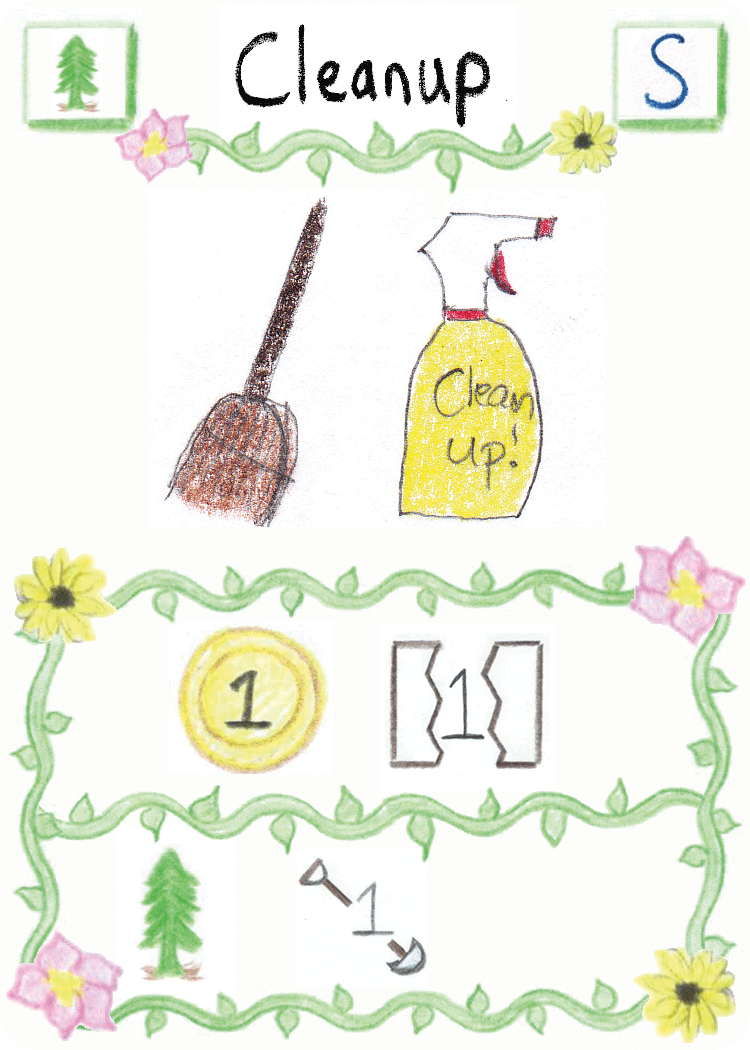 Cleanup
S
Clean
up!
1
1
1